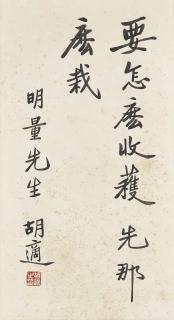 要怎麽收穫先那
麽栽
明量先生
胡適